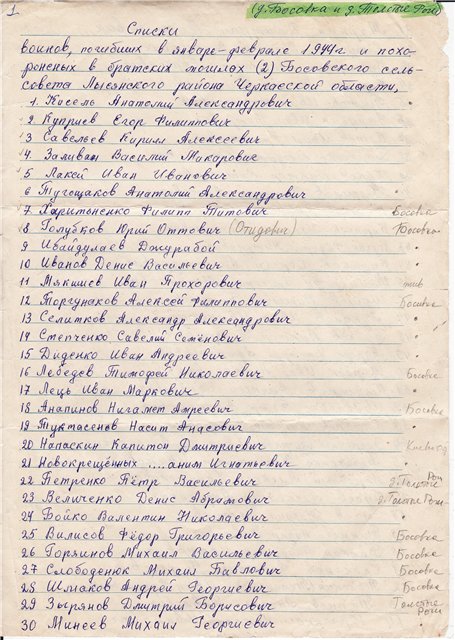 1
(д. Босовка и д. Толстые Роги)
Списки
воинов, погибших в январе-феврале 1944г. и похо-
роненых в братских могилах (2) Босовского сель-
совета Лысянского района Черкасской области.
1. Косель Анатолий Александрович
2 Куприев Егор Филиппович
3 Савельев Кирилл Алексеевич
4. Заливан Василий Макарович
5 Лаксей Иван Иванович
6 Тугощаков Анатолий Александрович
7 Харитоненко Филипп Титович Босовка
8 Голубков Юрий Оттович (Отидович) Босовка
9 Ибайдулаев Джурабой
10 Иванов Денис Васильевич
11 Мякишев Иван Прохорович жив
12 Торгунаков Алексей Филиппович Босовка
13 Селитков Александр Александрович
14 Степченко Савелий Семёнович
15 Диденко Иван Андреевич
16 Лебедев Тимофей Николаевич Босовка
17 Лець Иван Маркович
18 Анапинов Нигамет Амреевич Босовка
19 Туктасенов Насит Анасович
20 Напаскин Капитон Дмитриевич
21 Новокрещённых ....аним Игнатьевич
22 Петренко Пётр Васильевич д. Толстые Роги
23 Величенко Денис Абрамович д. Толстые Роги
24 Бойко Валентин Николаевич
25 Вилисов Фёдор Григорьевич Босовка
26 Горяинов Михаил Васильевич Босовка
27 Слободенюк Михаил Павлович Босовка
28 Шмаков Андрей Георгиевич Босовка
29 Зырянов Дмитрий Борисович Толстые Роги
30 Минеев Михаил Георгиевич